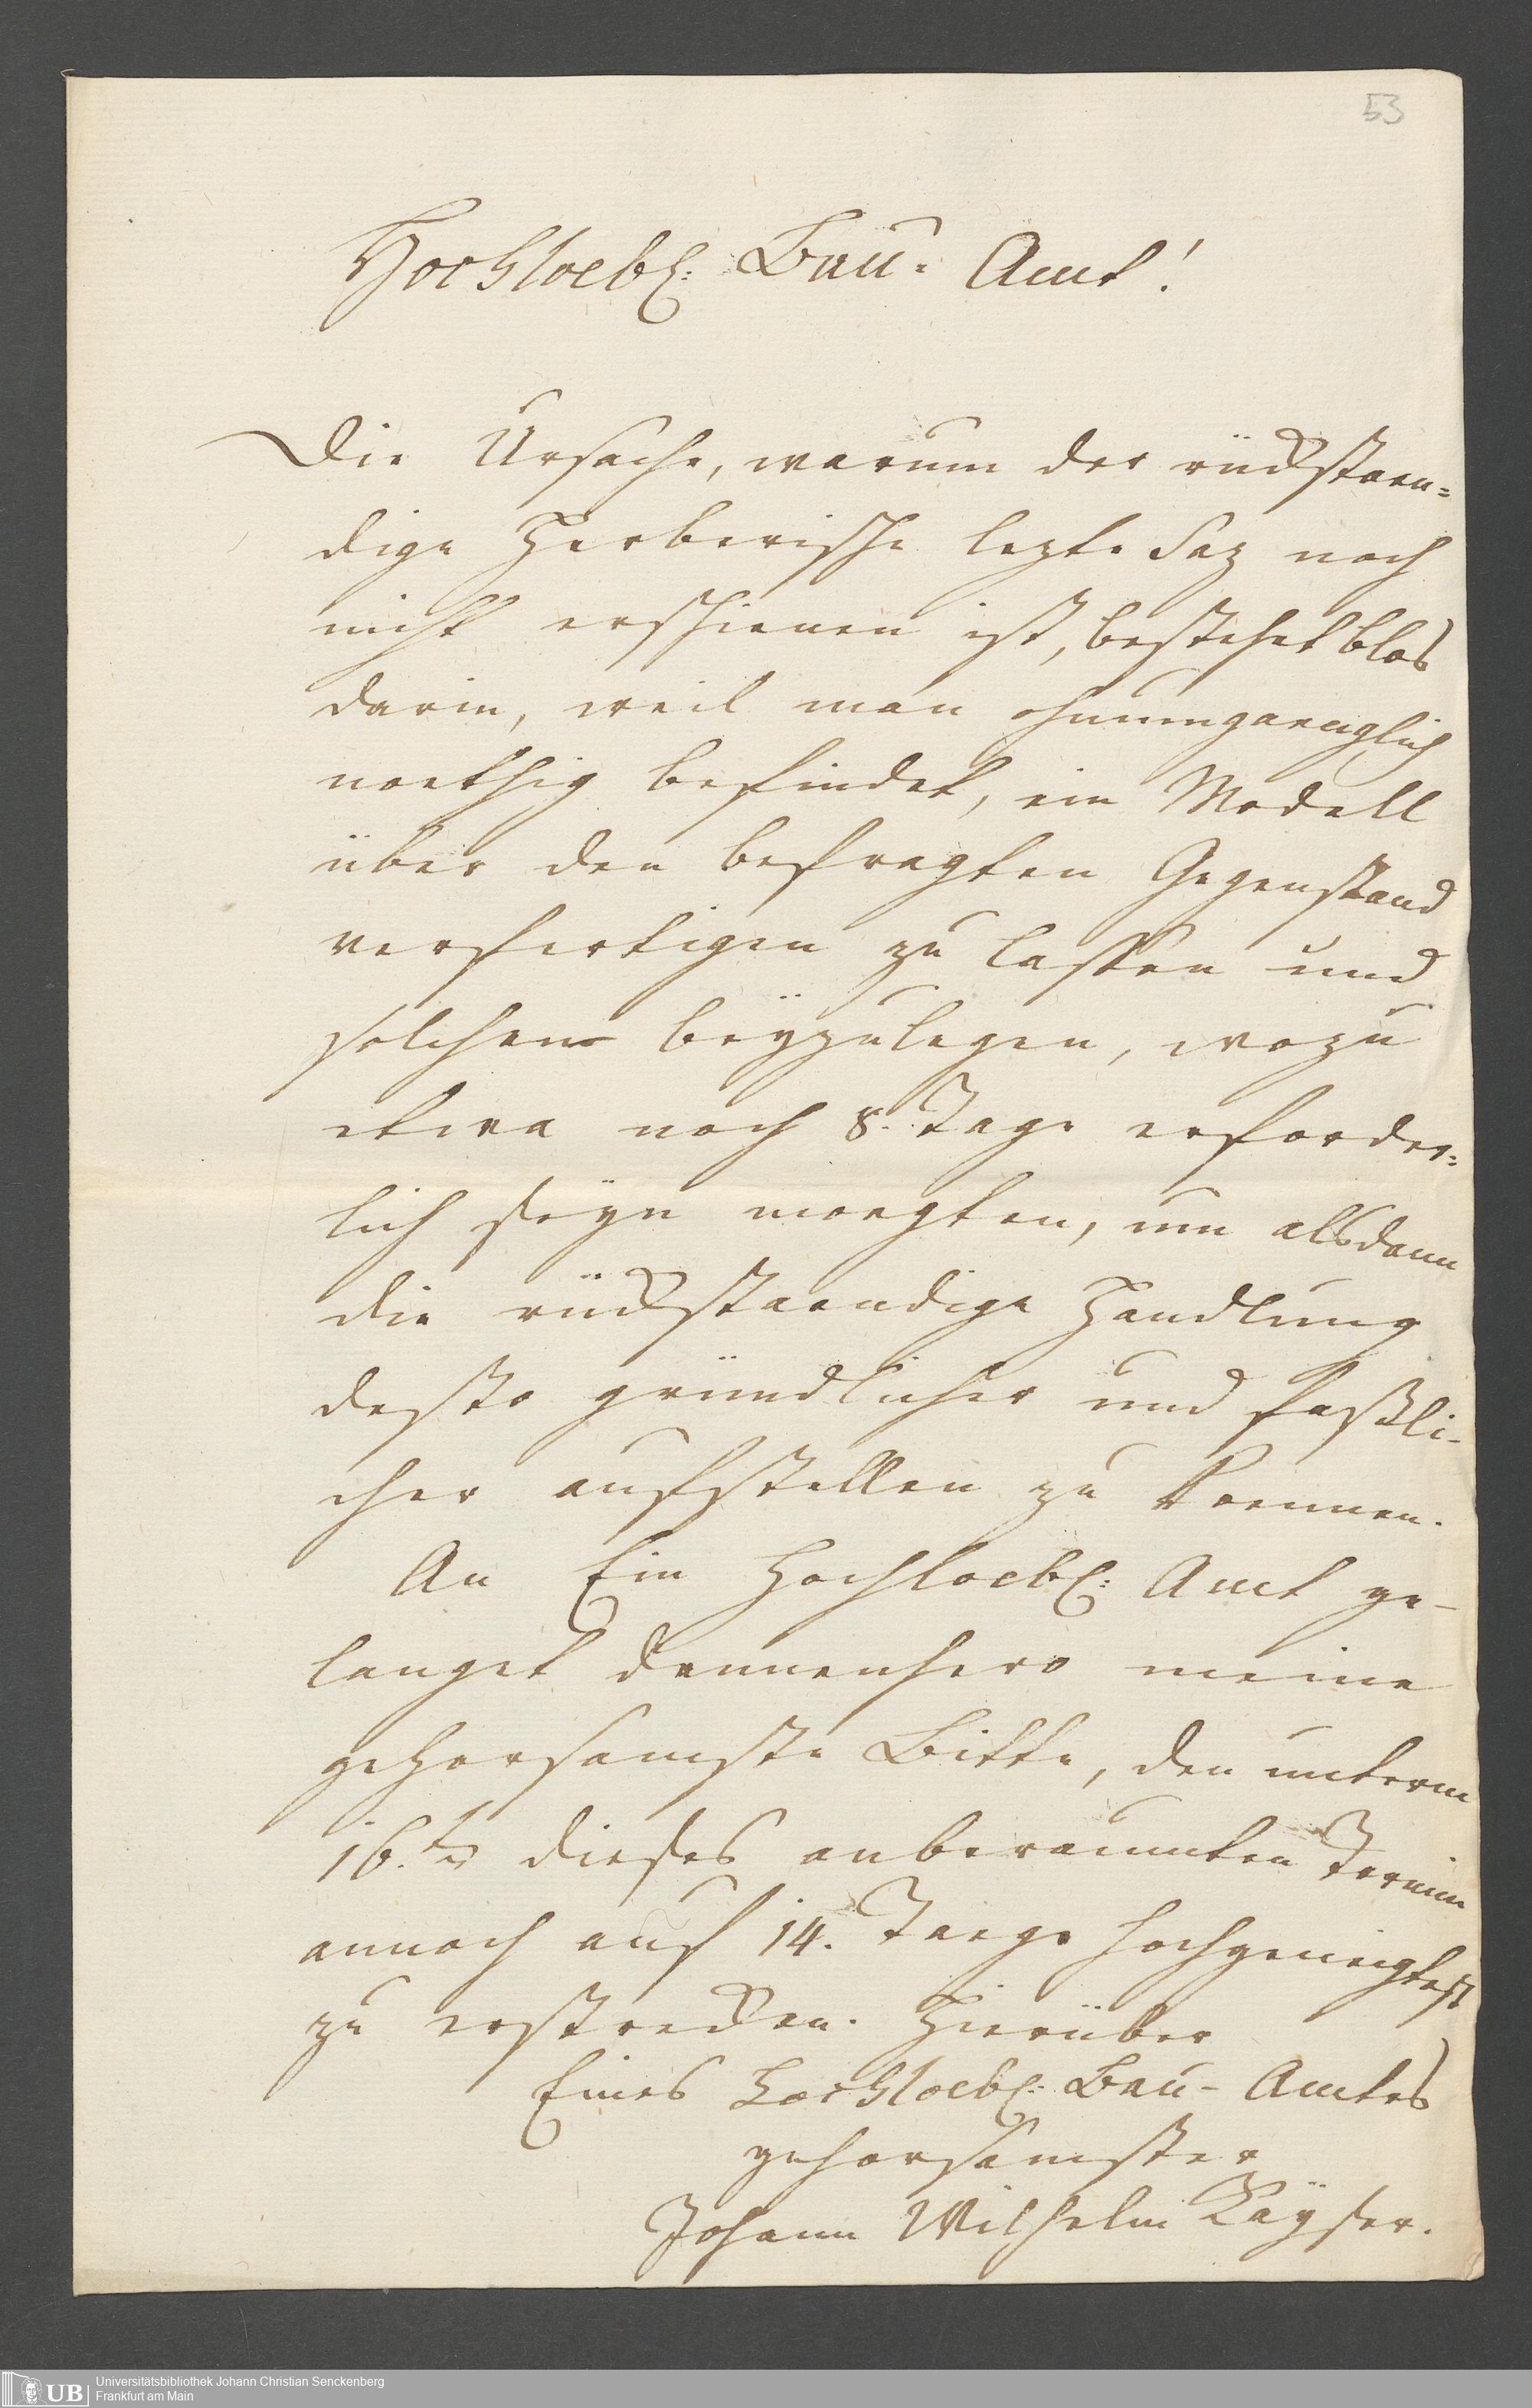 53
Hochloebl: Bau- Amt!
Die Ursache, warum der rückstaen=
dige Herberische lezte Saz noch
nicht erschienen ist, bestehet blos
darin, weil man ohnumgaenglich
noethig befindet, ein Modell
über den befragten Gegenstand
verfertigen zu lassen und
solchem beÿzulegen, wozu
etwa noch 8. Tage erforder=
lich seÿn moegten, um alsdann
die rückstaendige Handlung
desto gründlicher und faßli-
cher aufstellen zu koennen.
An Ein Hochloebl: Amt ge-
langet dannenhero meine
gehorsamste Bitte, den unterm
16.ten dieses anberaumten Termin
annoch auf 14. Taege hochgeneigtest
zu erstrecken. Hierüber
Eines Hochloebl: Bau- Amtes
gehorsamster
Johann Wilhelm Kaÿser.
UB Universitätsbibliothek Johann Christian Senckenberg
Frankfurt am Main